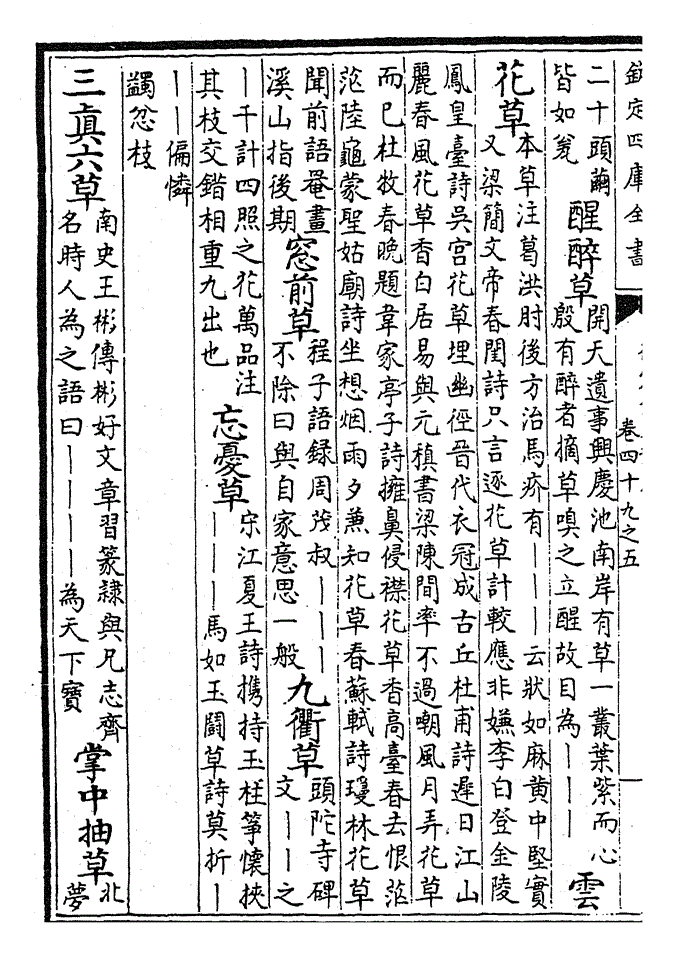 欽定四庫全書
卷四十九之五
二十頭繭
皆如瓮
醒醉草
開天遺事興慶池南岸有草一叢葉紫而心
殷有醉者摘草嗅之立醒故目為｜｜｜
雲
花草
本草注葛洪肘後方治馬疥有｜｜｜云狀如麻黄中堅實
又梁簡文帝春閨詩只言逐花草計較應非嫌李白登金陵
鳳皇臺詩吳宫花草埋幽徑晉代衣冠成古丘杜甫詩遲日江山
麗春風花草香白居易與元稹書梁陳間率不過嘲風月弄花草
而已杜牧春晚題韋家亭子詩擁鼻侵襟花草香高臺春去恨茫
茫陸龜蒙聖姑廟詩坐想烟雨夕兼知花草春蘇軾詩瓊林花草
聞前語罨畫
溪山指後期
窓前草
程子語録周茂叔｜｜｜
不除曰與自家意思一般
九衢草
頭陀寺碑
文｜｜之
｜千計四照之花萬品注
其枝交錯相重九出也
忘憂草
宋江夏王詩携持玉柱箏懷挾
｜｜｜馬如玉鬪草詩莫折｜
｜｜偏憐
蠲忿枝
三真六草
南史王彬傳彬好文章習篆隷與兄志齊
名時人為之語曰｜｜｜｜為天下寶
掌中抽草
北
夢